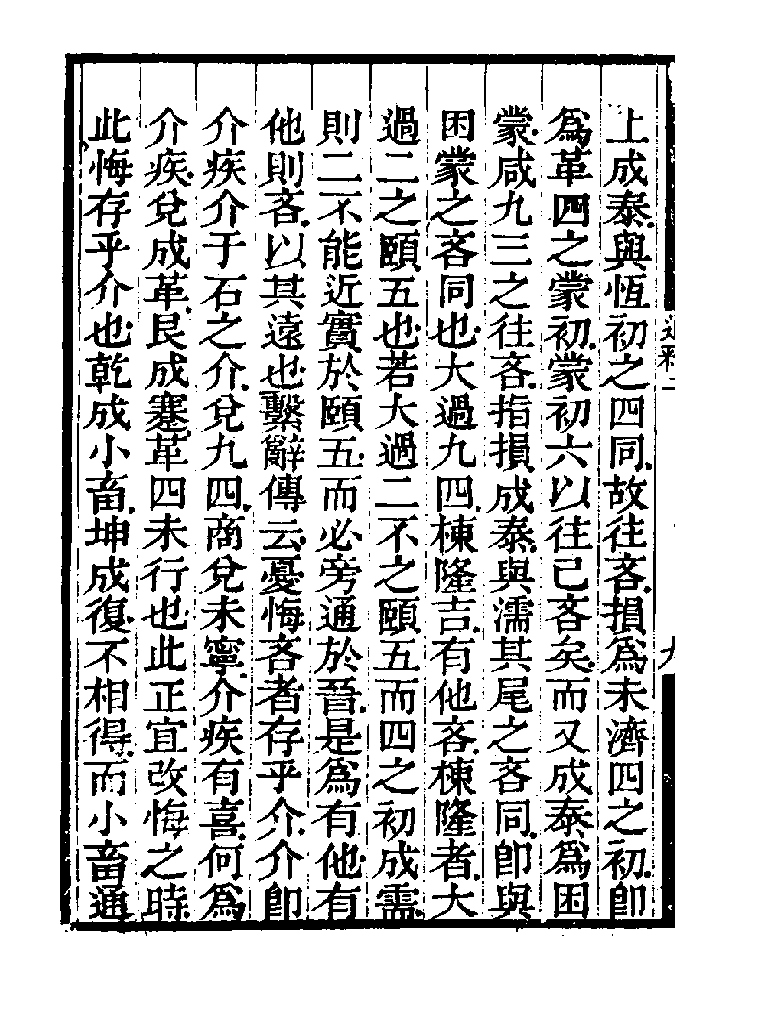 上成泰與恆初之四同故往吝損爲未濟四之初卽
爲革四之蒙初蒙初六以往已吝矣而又成泰爲困
蒙咸九三之往吝指損成泰與濡其尾之吝同卽與
困蒙之吝同也大過九四棟隆吉有他吝棟隆者大
過二之頤五也若大過二不之頤五而四之初成需
則二不能近實於頤五而必旁通於晉是爲有他有
他則吝以其遠也繫辭傳云憂悔吝者存乎介介卽
介疾介于石之介兌九四商兌未寧介疾有喜何爲
介疾兌成革艮成蹇革四未行也此正宜改悔之時
此悔存乎介也乾成小畜坤成復不相得而小畜通
通釋二
九